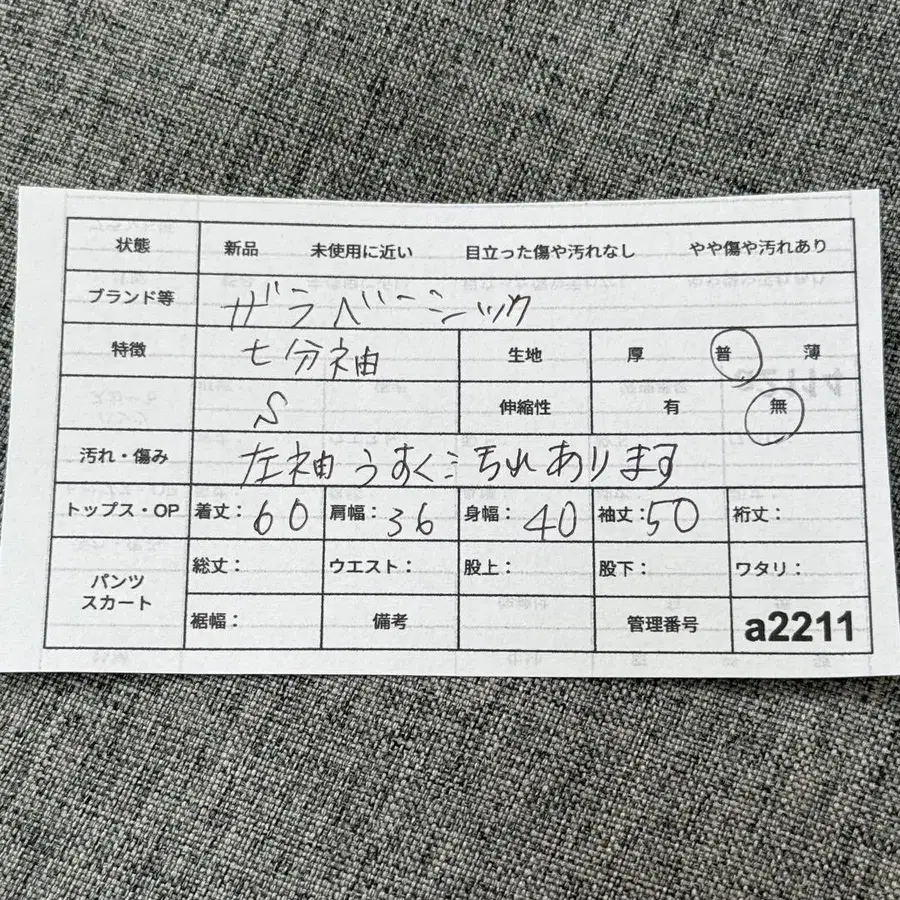 状態 新品 未使用に近い 目立った傷や汚れなし やや傷や汚れあり
ブランド等 ザラベーシック
特徴 七分袖 生地 厚 普 薄
S 伸縮性 有 無
汚れ・傷み 左袖うすく汚れあります
トップス・OP 着丈：60 肩幅：36 身幅：40 袖丈：50 裄丈：
パンツ スカート 総丈： ウエスト： 股上： 股下： ワタリ：
裾幅： 備考 管理番号 a2211